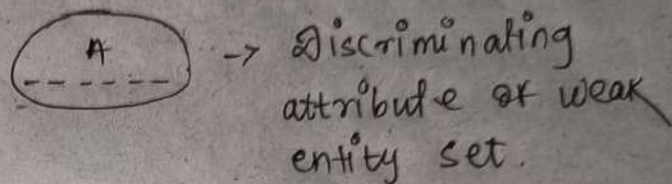 A → Discriminating
attribute of weak
entity set.